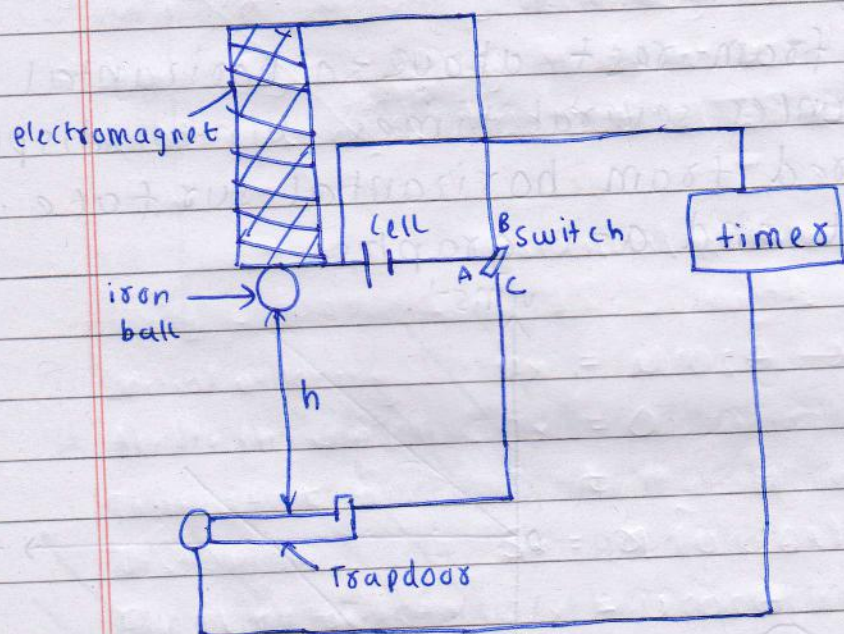 electromagnet
cell
B switch
timer
A
C
iron
ball
h
Trapdoor